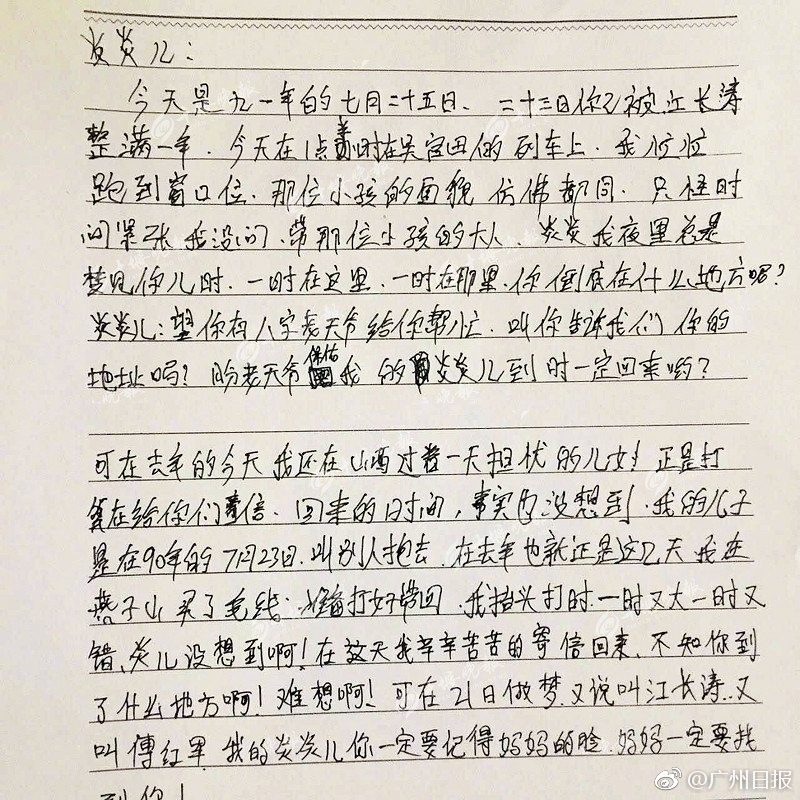 炎炎儿：
今天是九一年的七月二十五日、二十三日你已被江长涛
整满一年．今天在1点 时在吴官田的列车上．我忙忙
跑到窗口位．那位小孩的面貌仿佛都同．只怪时
间紧张我没问．带那位小孩的大人．炎炎我夜里总是
梦见你儿时．一时在这里．一时在那里．你倒底在什么地方呢？
炎炎儿：望你有八字老天爷给你帮忙．叫你告诉我们你的
地址吗？盼老天爷保佑我的炎炎儿到时一定回来哟？
可在去年的今天我还在山西过着一天担忧的儿女！正是打
算在给你们 信．回来的日时间，事实内没想到．我的儿子
是在90年的7月23日．叫别人抱去．在去年也就还是这几天我在
燕子山买了毛线．准备打好带回．我抬头打时．一时又大一时又
错、炎儿没想到啊！在这天我辛辛苦苦的寄信回来、不知你到
了什么地方啊！难想啊！可在21日做梦．又说叫江长涛．又
叫傅红军．我的炎炎儿你一定要记得妈妈的脸．妈妈一定要找
到你！
@广州日报